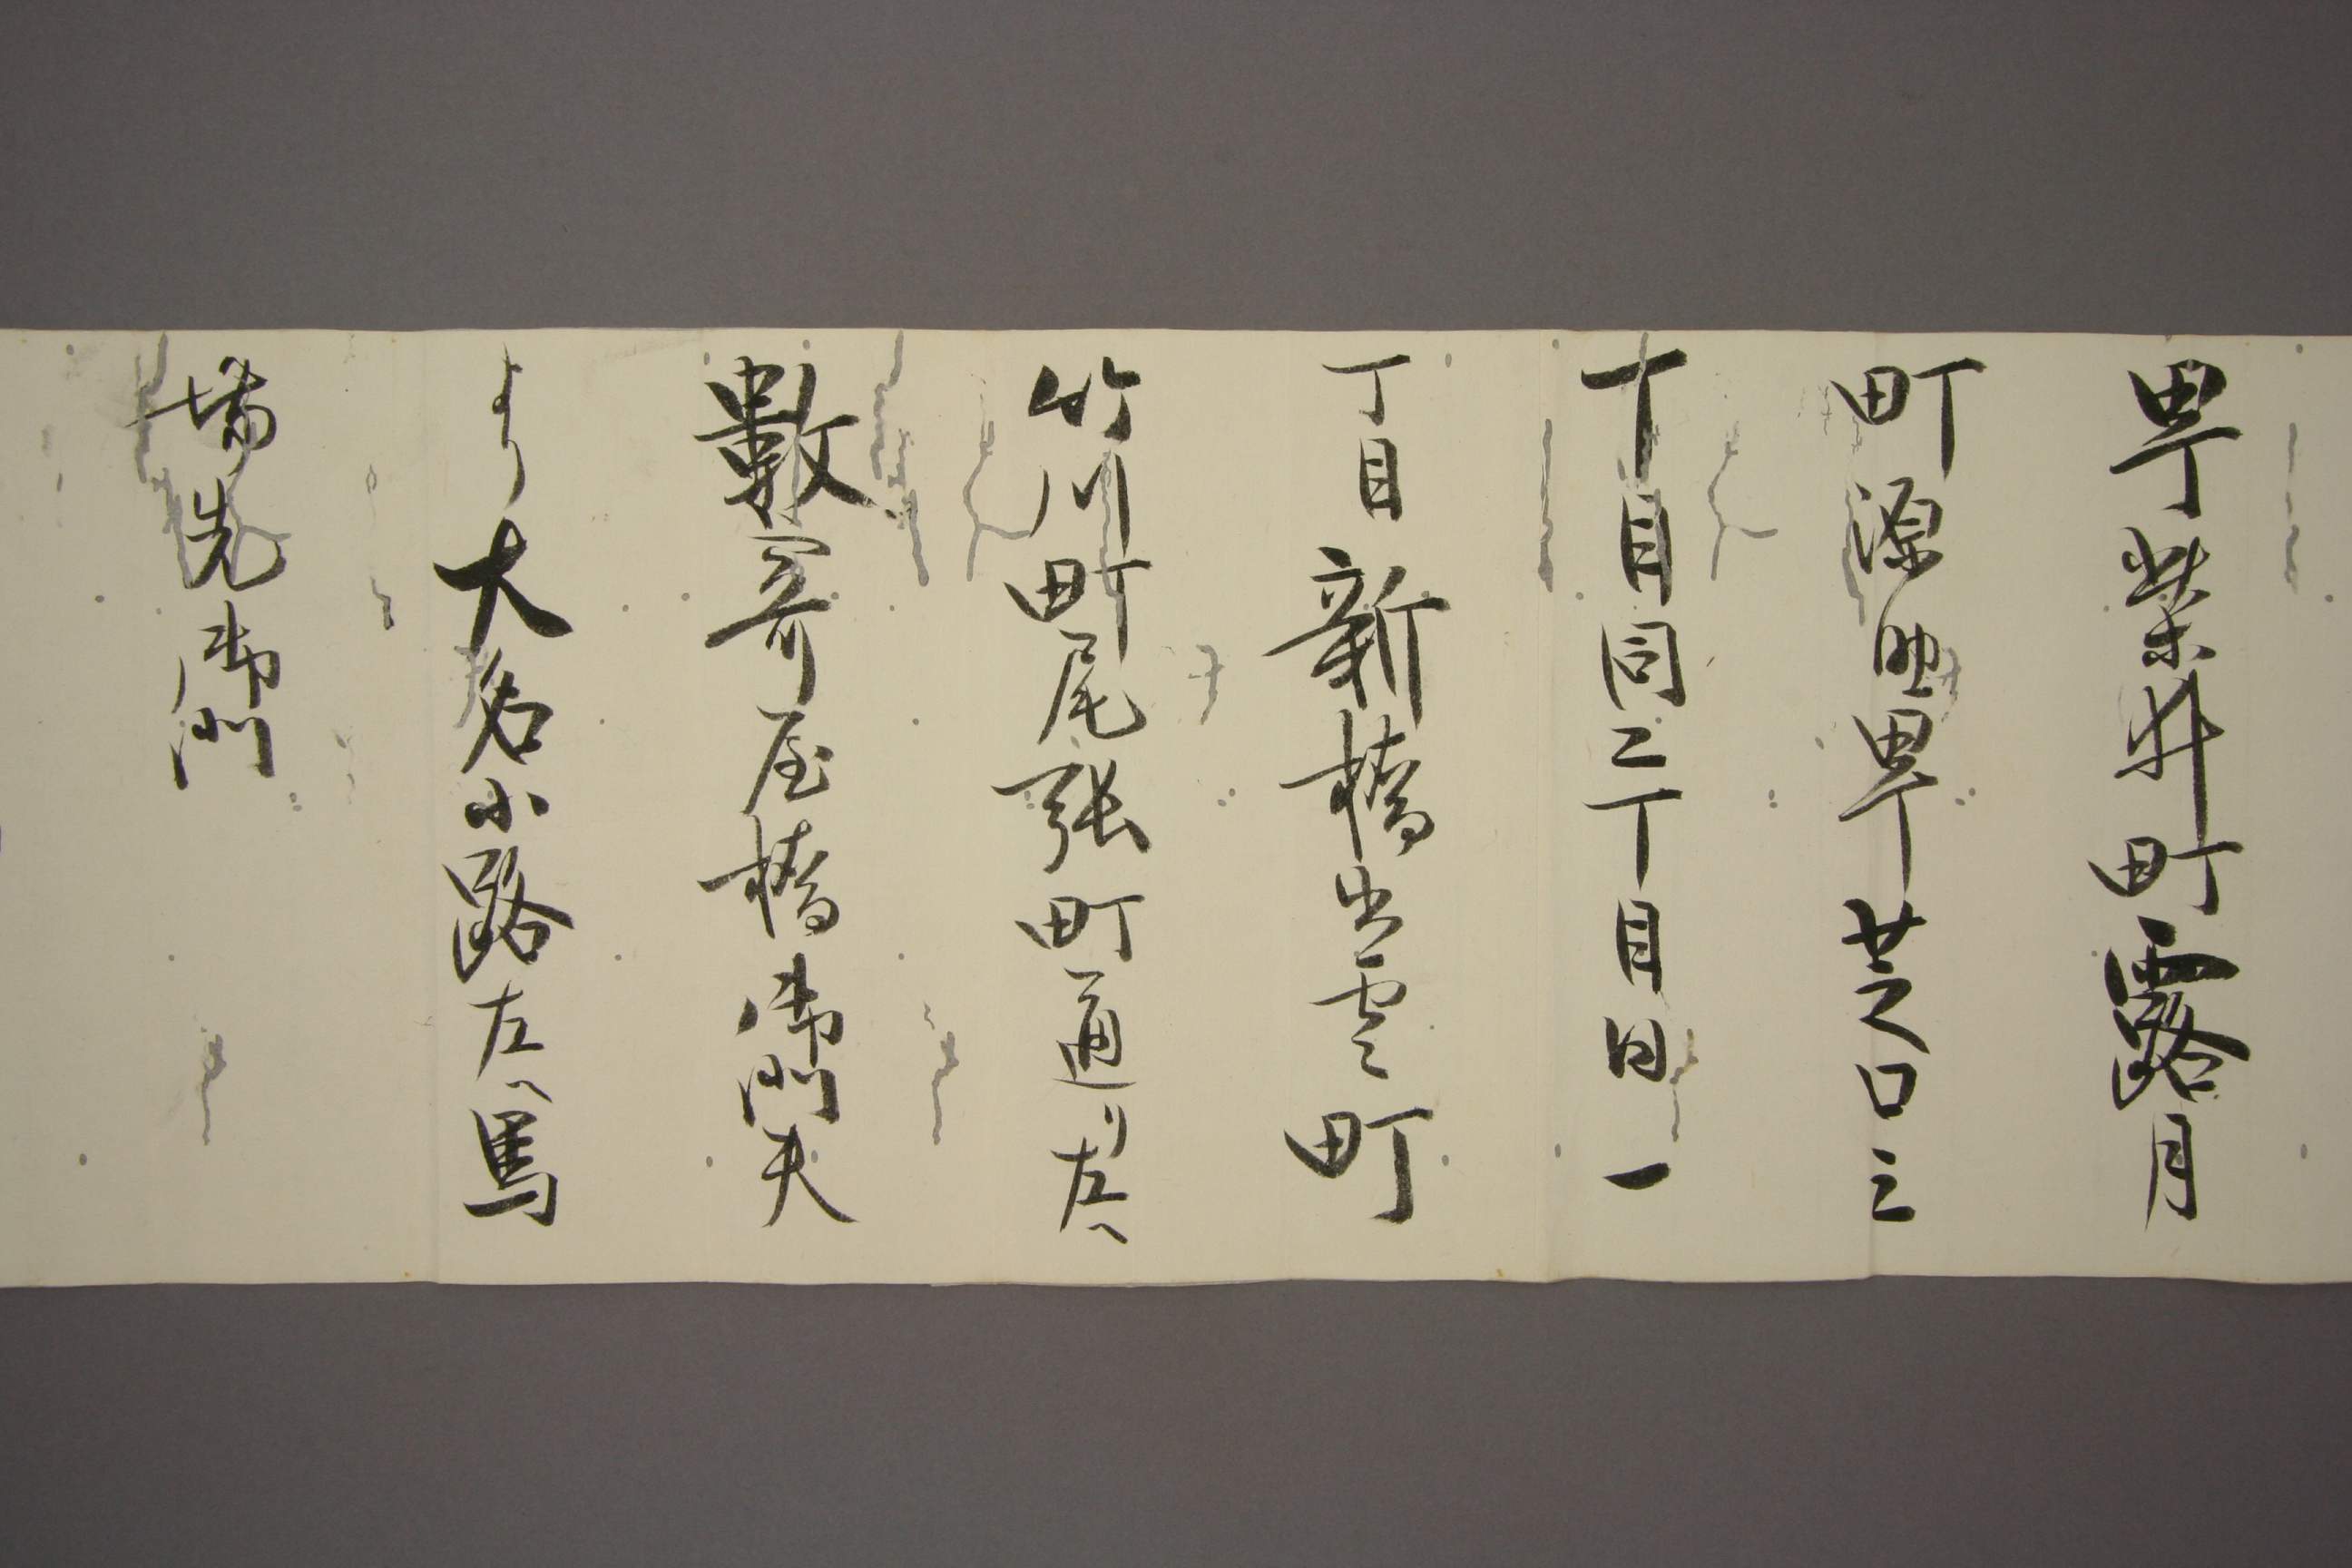 町柴井町露月
町源助町芝口三
丁目同二丁目同一
丁目新橋出雲町
竹川町尾張町通り左へ
數寄屋橋御門夫
より大名小路左へ馬
場先御門